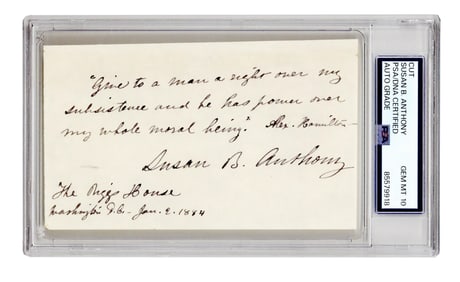 "Give to a man a right over my
subsistence and he has power over
my whole moral being." Alex. Hamilton
Susan B. Anthony
The Riggs House
Washington D.C. Jan. 2. 1884
CUT
SUSAN B. ANTHONY
PSA/DNA CERTIFIED
AUTO GRADE
GEM MT 10
85579918
PSA